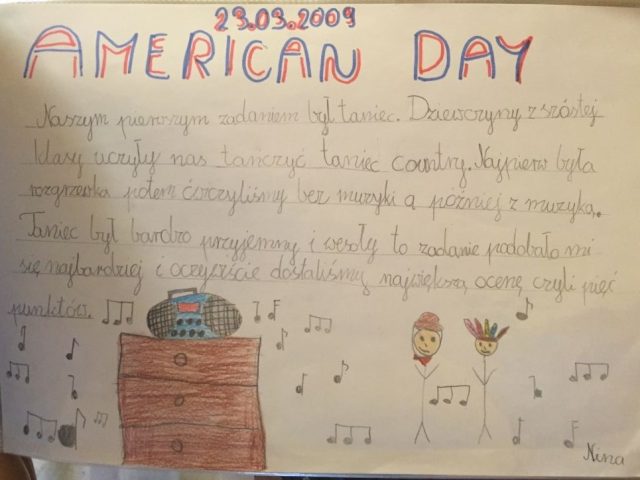 23.03.2009
AMERICAN DAY
Naszym pierwszym zadaniem był taniec. Dziewczyny z szóstej
klasy uczyły nas tańczyć taniec country. Najpierw była
rozgrzewka potem ćwiczyliśmy bez muzyki a później z muzyką.
Taniec był bardzo przyjemny i wesoły to zadanie podobało mi
się najbardziej i oczywiście dostaliśmy największą ocenę czyli pięć
punktów.
Nina